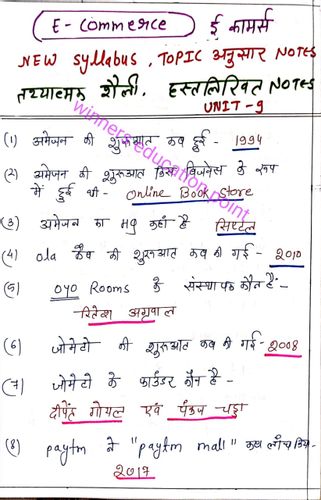 E-Commerce ई कामर्स
NEW Syllabus, TOPIC अनुसार NOTES
तथ्यात्मक शैली. हस्तलिखित NOTES
UNIT-9
winners education point
(1) अमेजन की शुरूआत कब हुई - 1994
(2) अमेजन की शुरूआत किस बिजनेस के रूप
में हुई थी - Online Book Store
(3) अमेजन का HQ कहां है सिएटल
(4) ola कैब की शुरूआत कब की गई - 2010
(5) OYO Rooms के संस्थापक कौन है:-
रितेश अग्रवाल
(6) जोमेटो की शुरूआत कब की गई - 2008
(7) जोमेटो के फाउंडर कौन है -
दीपेंद्र गोयल एवं पंकज चड्डा
(8) paytm ने "paytm mall" कब लॉंच किया-
2017